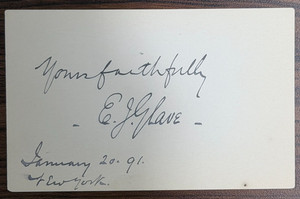 Yours faithfully
- E. J. Glave -
January 20. 91.
New York.